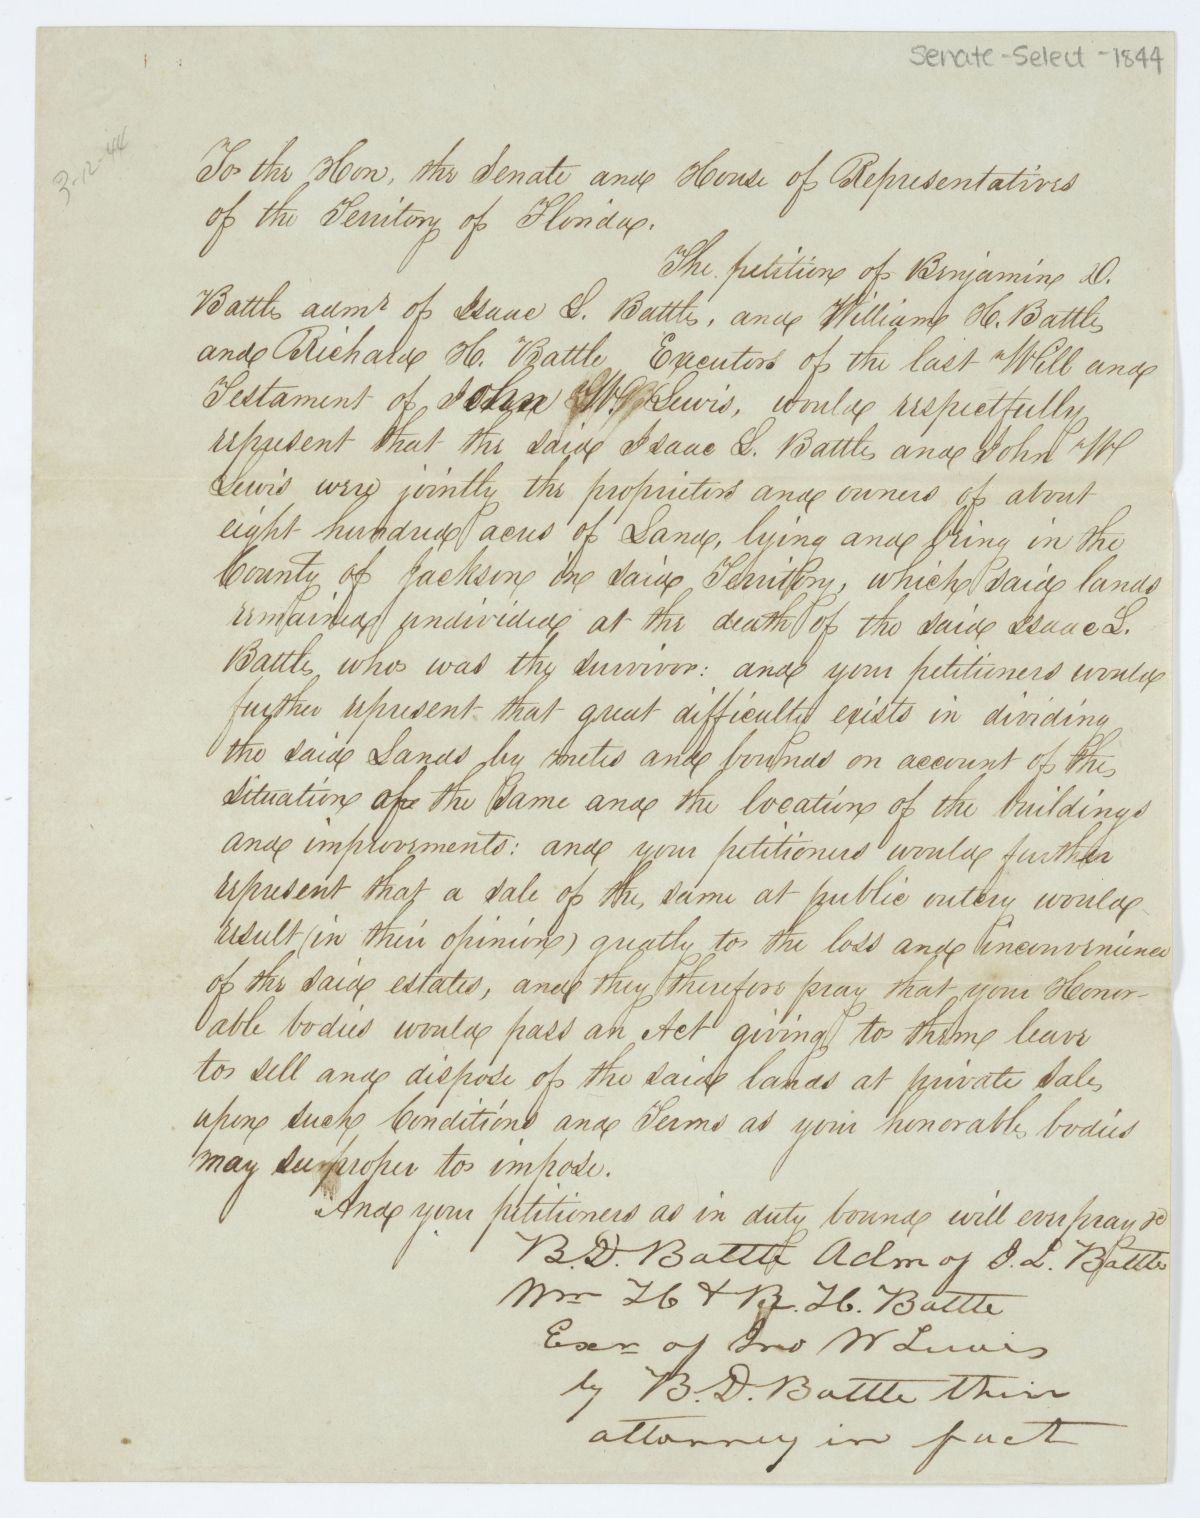 Senate-Select-1844
3-12-44
To the Hon, the Senate and House of Representatives
of the Territory of Florida.
The petition of Benjamin D.
Battle admr of Isaac L. Battle, and William H. Battle
and Richard H. Battle Executors of the last Will and
Testament of John W. Lewis, would respectfully
represent that the said Isaac L. Battle and John W
Lewis were jointly the proprietors and owners of about
eight hundred acres of Land, lying and being in the
County of Jackson in said Territory, which said lands
remained undivided at the death of the said Isaac L.
Battle, who was the survivor: and your petitioners would
further represent that great difficulty exists in dividing
the said Lands by metes and bounds on account of the
situation of the same and the location of the buildings
and improvements: and your petitioners would further
represent that a sale of the same at public outcry would
result (in their opinion) greatly to the loss and inconvenience
of the said estates, and they therefore pray that your Honor-
able bodies would pass an Act giving to them leave
to sell and dispose of the said lands at private sale,
upon such Conditions and Terms as your honorable bodies
may see proper to impose.
And your petitioners as in duty bound will ever pray &c
B. D. Battle Adm of I. L. Battle
Wm H & R. H. Battle
Exr of Jno W Lewis
by B. D. Battle their
attorney in fact